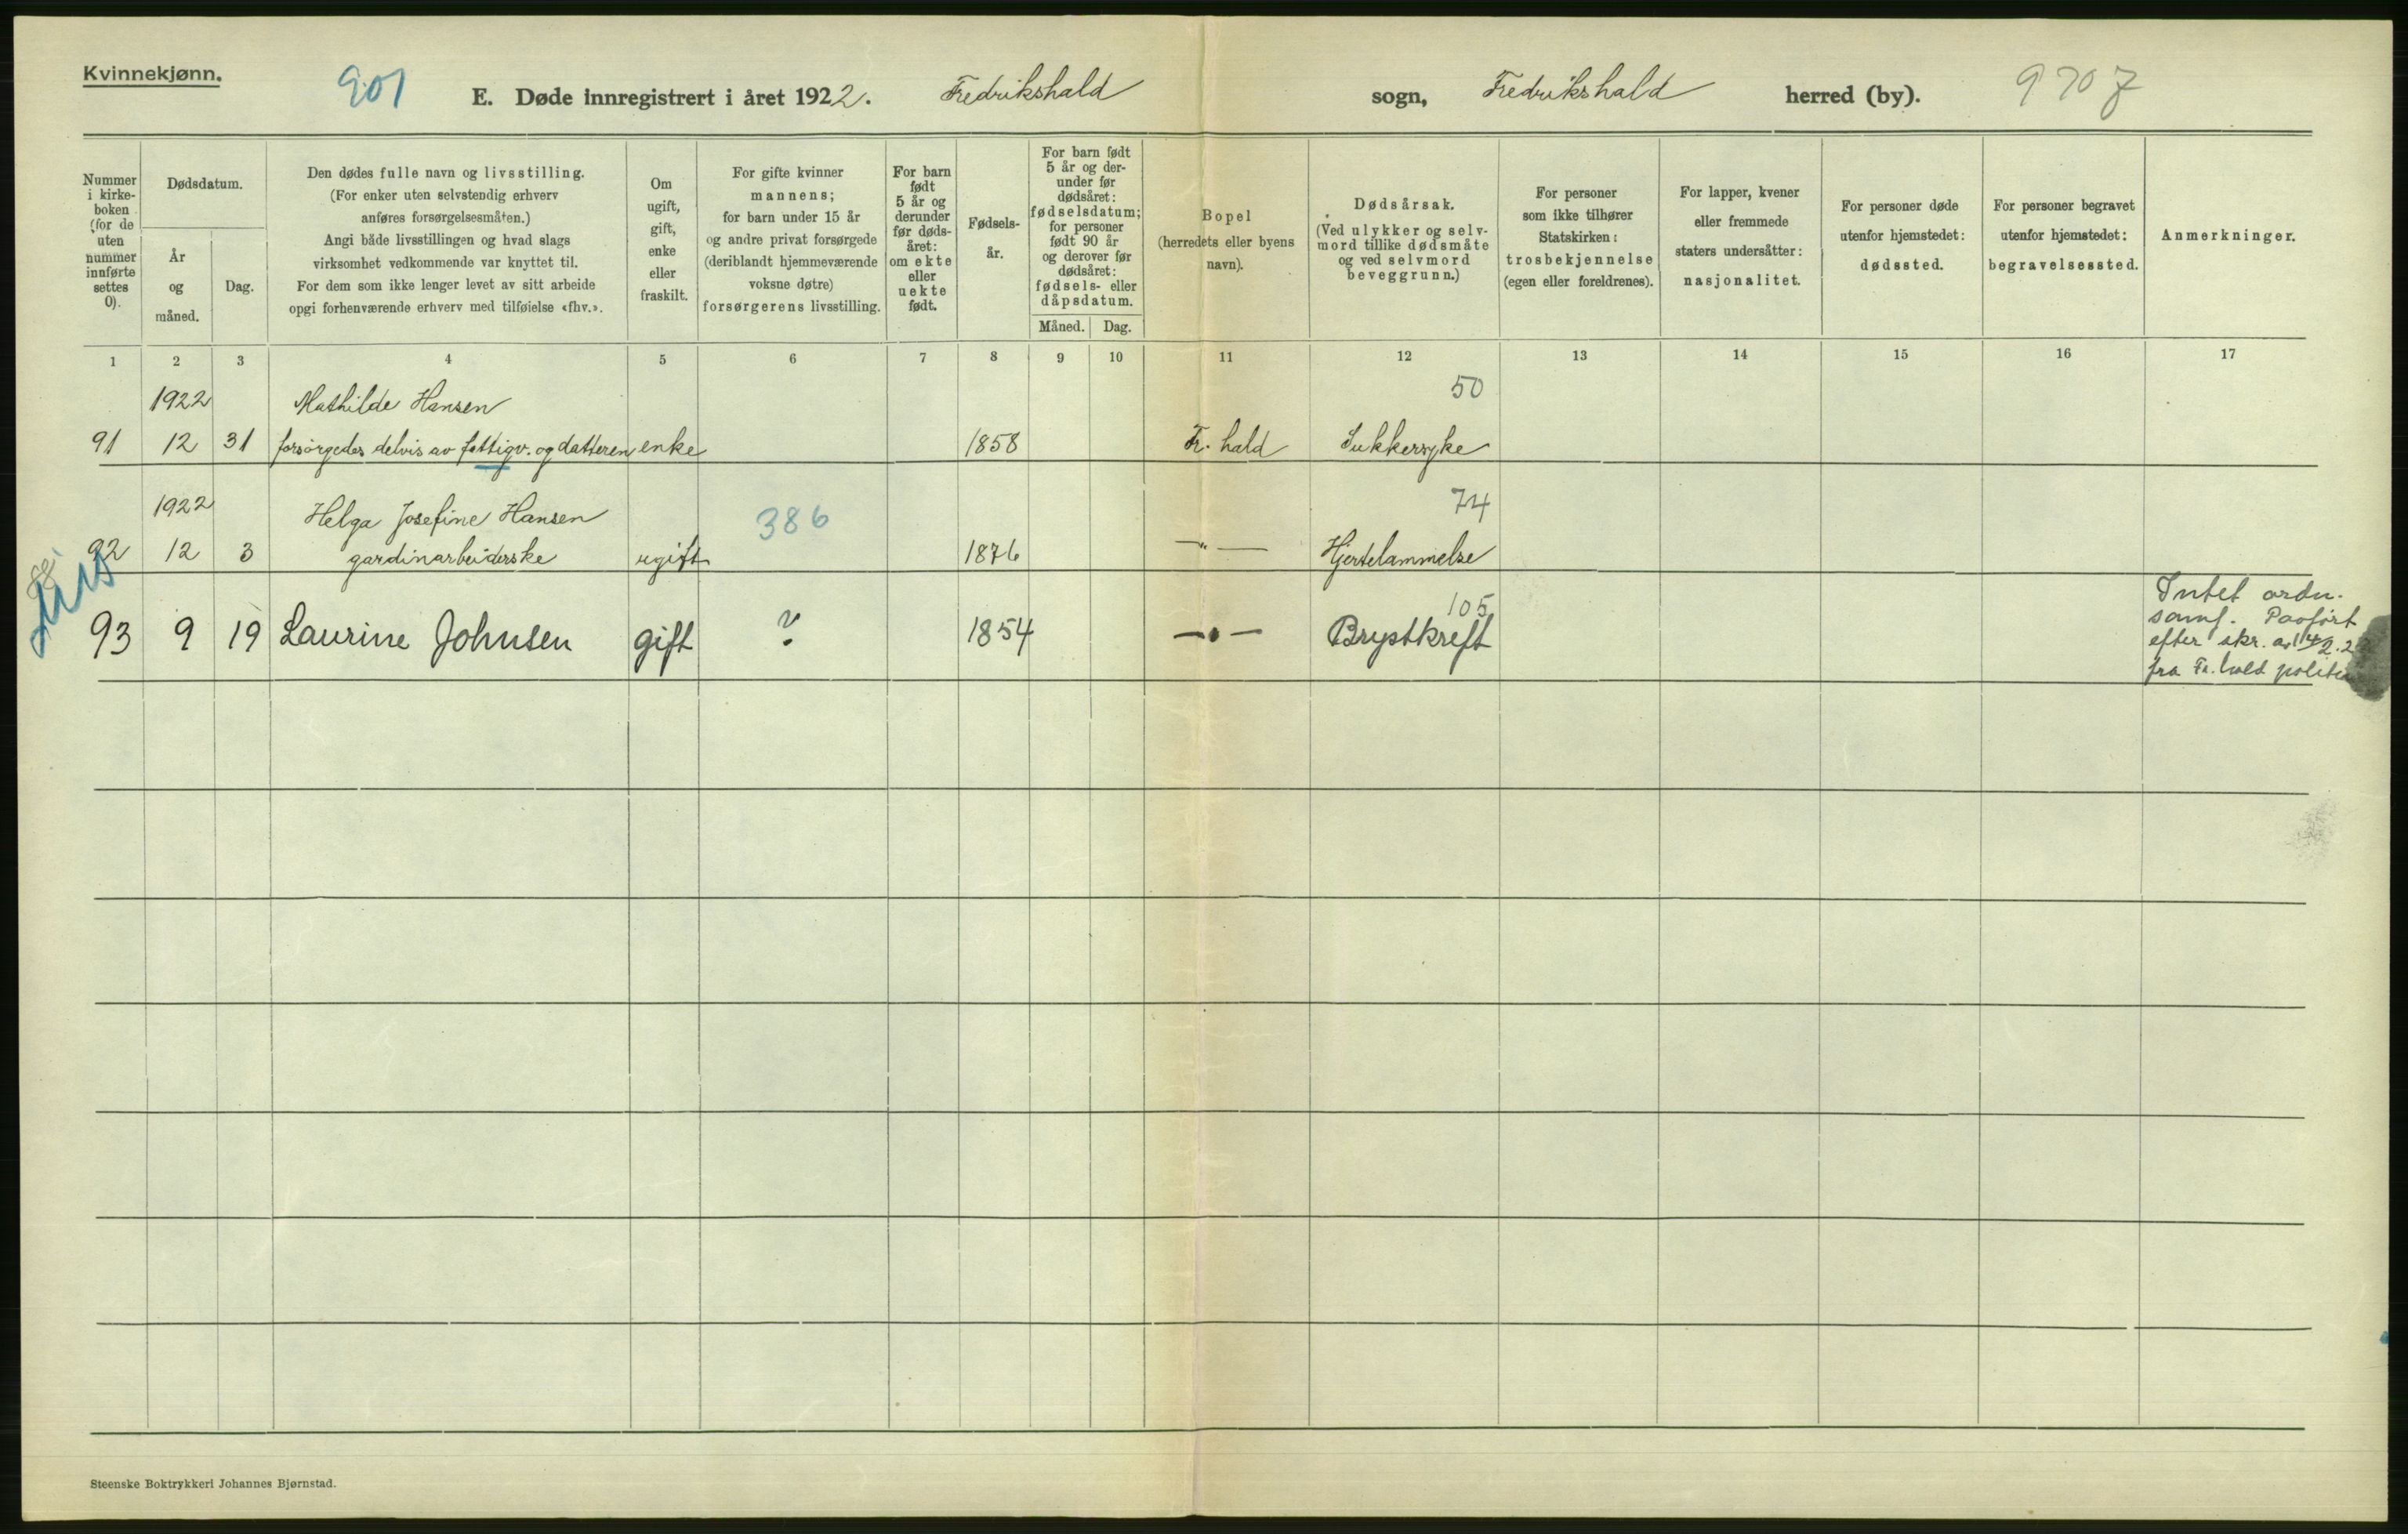 Kvinnekjønn.
901
E. Døde innregistrert i året 1922. Fredrikshald sogn, Fredrikshald herred (by). 9707
Nummer
i kirke-
boken
(for de
uten
nummer
innførte
settes
0).
Dødsdatum.
År
og
måned.
Dag.
Den dødes fulle navn og livsstilling.
(For enker uten selvstendig erhverv
anføres forsørgelsesmåten.)
Angi både livsstillingen og hvad slags
virksomhet vedkommende var knyttet til.
For dem som ikke lenger levet av sitt arbeide
opgi forhenværende erhverv med tilføielse «fhv.».
Om
ugift,
gift,
enke
eller
fraskilt.
For gifte kvinner
mannens;
for barn under 15 år
og andre privat forsørgede
(deriblandt hjemmeværende
voksne døtre)
forsørgerens livsstilling.
For barn
født
5 år og
derunder
før døds-
året:
om ekte
eller
uekte
født.
Fødsels-
år.
For barn født
5 år og der-
under før
dødsåret:
fødselsdatum;
for personer
født 90 år
og derover før
dødsåret:
fødsels- eller
dåpsdatum.
Måned. Dag.
Bopel
(herredets eller byens
navn).
Dødsårsak.
(Ved ulykker og selv-
mord tillike dødsmåte
og ved selvmord
beveggrunn.)
For personer
som ikke tilhører
Statskirken:
trosbekjennelse
(egen eller foreldrenes).
For lapper, kvener
eller fremmede
staters undersåtter:
nasjonalitet.
For personer døde
utenfor hjemstedet:
dødssted.
For personer begravet
utenfor hjemstedet:
begravelsessted.
Anmerkninger.
1 2 3 4 5 6 7 8 9 10 11 12 13 14 15 16 17
1922 Mathilde Hansen 50
91 12 31 forsørgedes delvis av fattigv. og datteren enke 1858 Fr.hald Sukkersyke
1922 Helga Josefine Hansen 386 74
92 12 3 gardinarbeiderske ugift 1876 —"— Hjertelammelse
93 9 19 Laurine Johnsen gift ? 1854 —"— 105 Brystkreft
Intet ordn.
samf. Paaført
efter skr. av 14/2.2
fra Fr.hald politi
Steenske Boktrykkeri Johannes Bjørnstad.